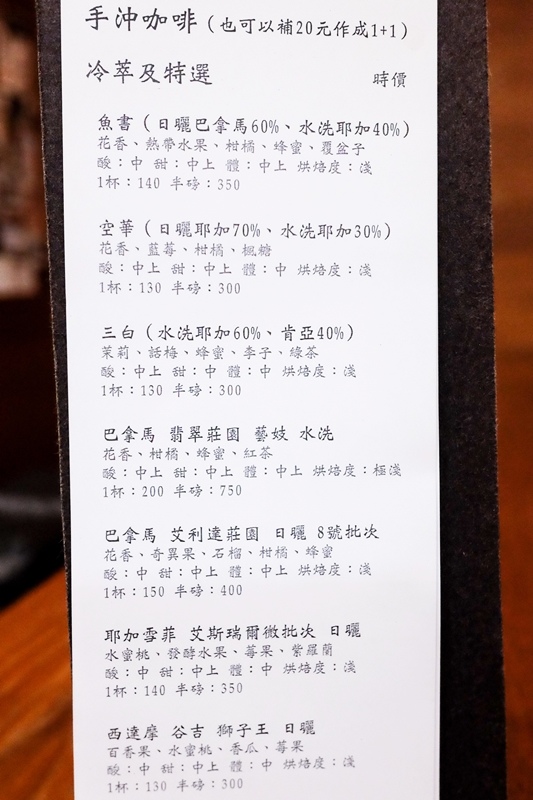 手沖咖啡（也可以補20元作成1+1）
冷萃及特選 時價
魚書（日曬巴拿馬60%、水洗耶加40%）
花香、熱帶水果、柑橘、蜂蜜、覆盆子
酸：中 甜：中上 體：中上 烘焙度：淺
1杯：140 半磅：350
空華（日曬耶加70%、水洗耶加30%）
花香、藍莓、柑橘、楓糖
酸：中上 甜：中上 體：中 烘焙度：淺
1杯：130 半磅：300
三白（水洗耶加60%、肯亞40%）
茉莉、話梅、蜂蜜、李子、綠茶
酸：中上 甜：中 體：中 烘焙度：淺
1杯：130 半磅：300
巴拿馬 翡翠莊園 藝妓 水洗
花香、柑橘、蜂蜜、紅茶
酸：中上 甜：中上 體：中上 烘焙度：極淺
1杯：200 半磅：750
巴拿馬 艾利達莊園 日曬 8號批次
花香、奇異果、石榴、柑橘、蜂蜜
酸：中 甜：中上 體：中上 烘焙度：淺
1杯：150 半磅：400
耶加雪菲 艾斯瑞爾微批次 日曬
水蜜桃、發酵水果、莓果、紫羅蘭
酸：中 甜：中上 體：中 烘焙度：淺
1杯：140 半磅：350
西達摩 谷吉 獅子王 日曬
百香果、水蜜桃、香瓜、莓果
酸：中 甜：中上 體：中 烘焙度：淺
1杯：130 半磅：300